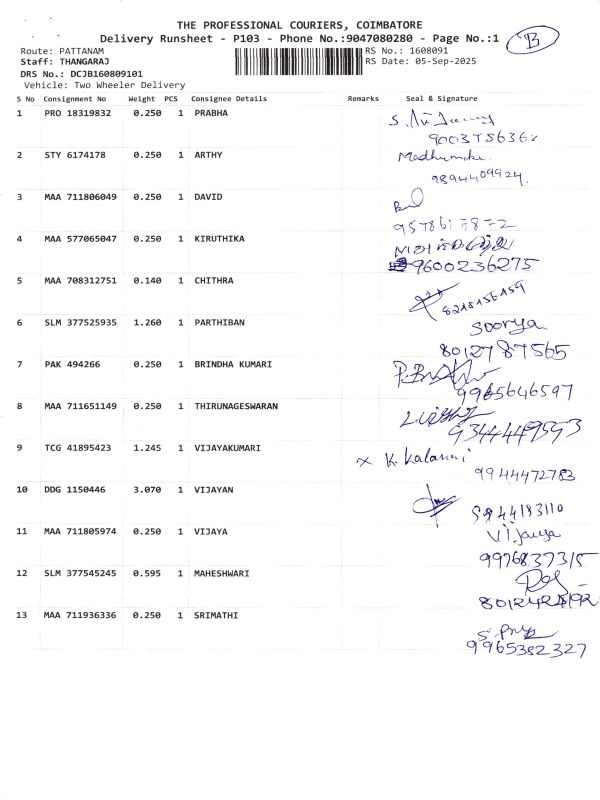 THE PROFESSIONAL COURIERS, COIMBATORE
Delivery Runsheet - P103 - Phone No.:9047080280 - Page No.:1
B
Route: PATTANAM RS No.: 1608091
Staff: THANGARAJ RS Date: 05-Sep-2025
DRS No.: DCJB160809101
Vehicle: Two Wheeler Delivery
S No Consignment No Weight PCS Consignee Details Remarks Seal & Signature
1 PRO 18319832 0.250 1 PRABHA
2 STY 6174178 0.250 1 ARTHY
9894409924.
3 MAA 711806049 0.250 1 DAVID
4 MAA 577065047 0.250 1 KIRUTHIKA
9600236275
5 MAA 708312751 0.140 1 CHITHRA
6 SLM 377525935 1.260 1 PARTHIBAN
Soorya
8012787565
7 PAK 494266 0.250 1 BRINDHA KUMARI
9965646597
8 MAA 711651149 0.250 1 THIRUNAGESWARAN
9 TCG 41895423 1.245 1 VIJAYAKUMARI
x K. Kalamani
9944472783
10 DDG 1150446 3.070 1 VIJAYAN
11 MAA 711805974 0.250 1 VIJAYA
Vijaya
9976837315
12 SLM 377545245 0.595 1 MAHESHWARI
13 MAA 711936336 0.250 1 SRIMATHI
9965382327